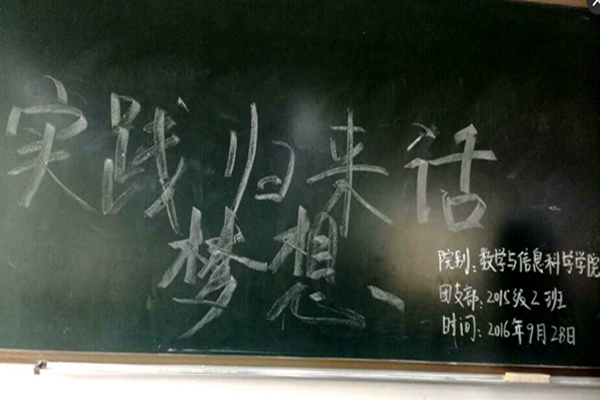 实践归来话
梦想
院别:数学与信息科学学院
团支部:2015级2班
时间:2016年9月28日